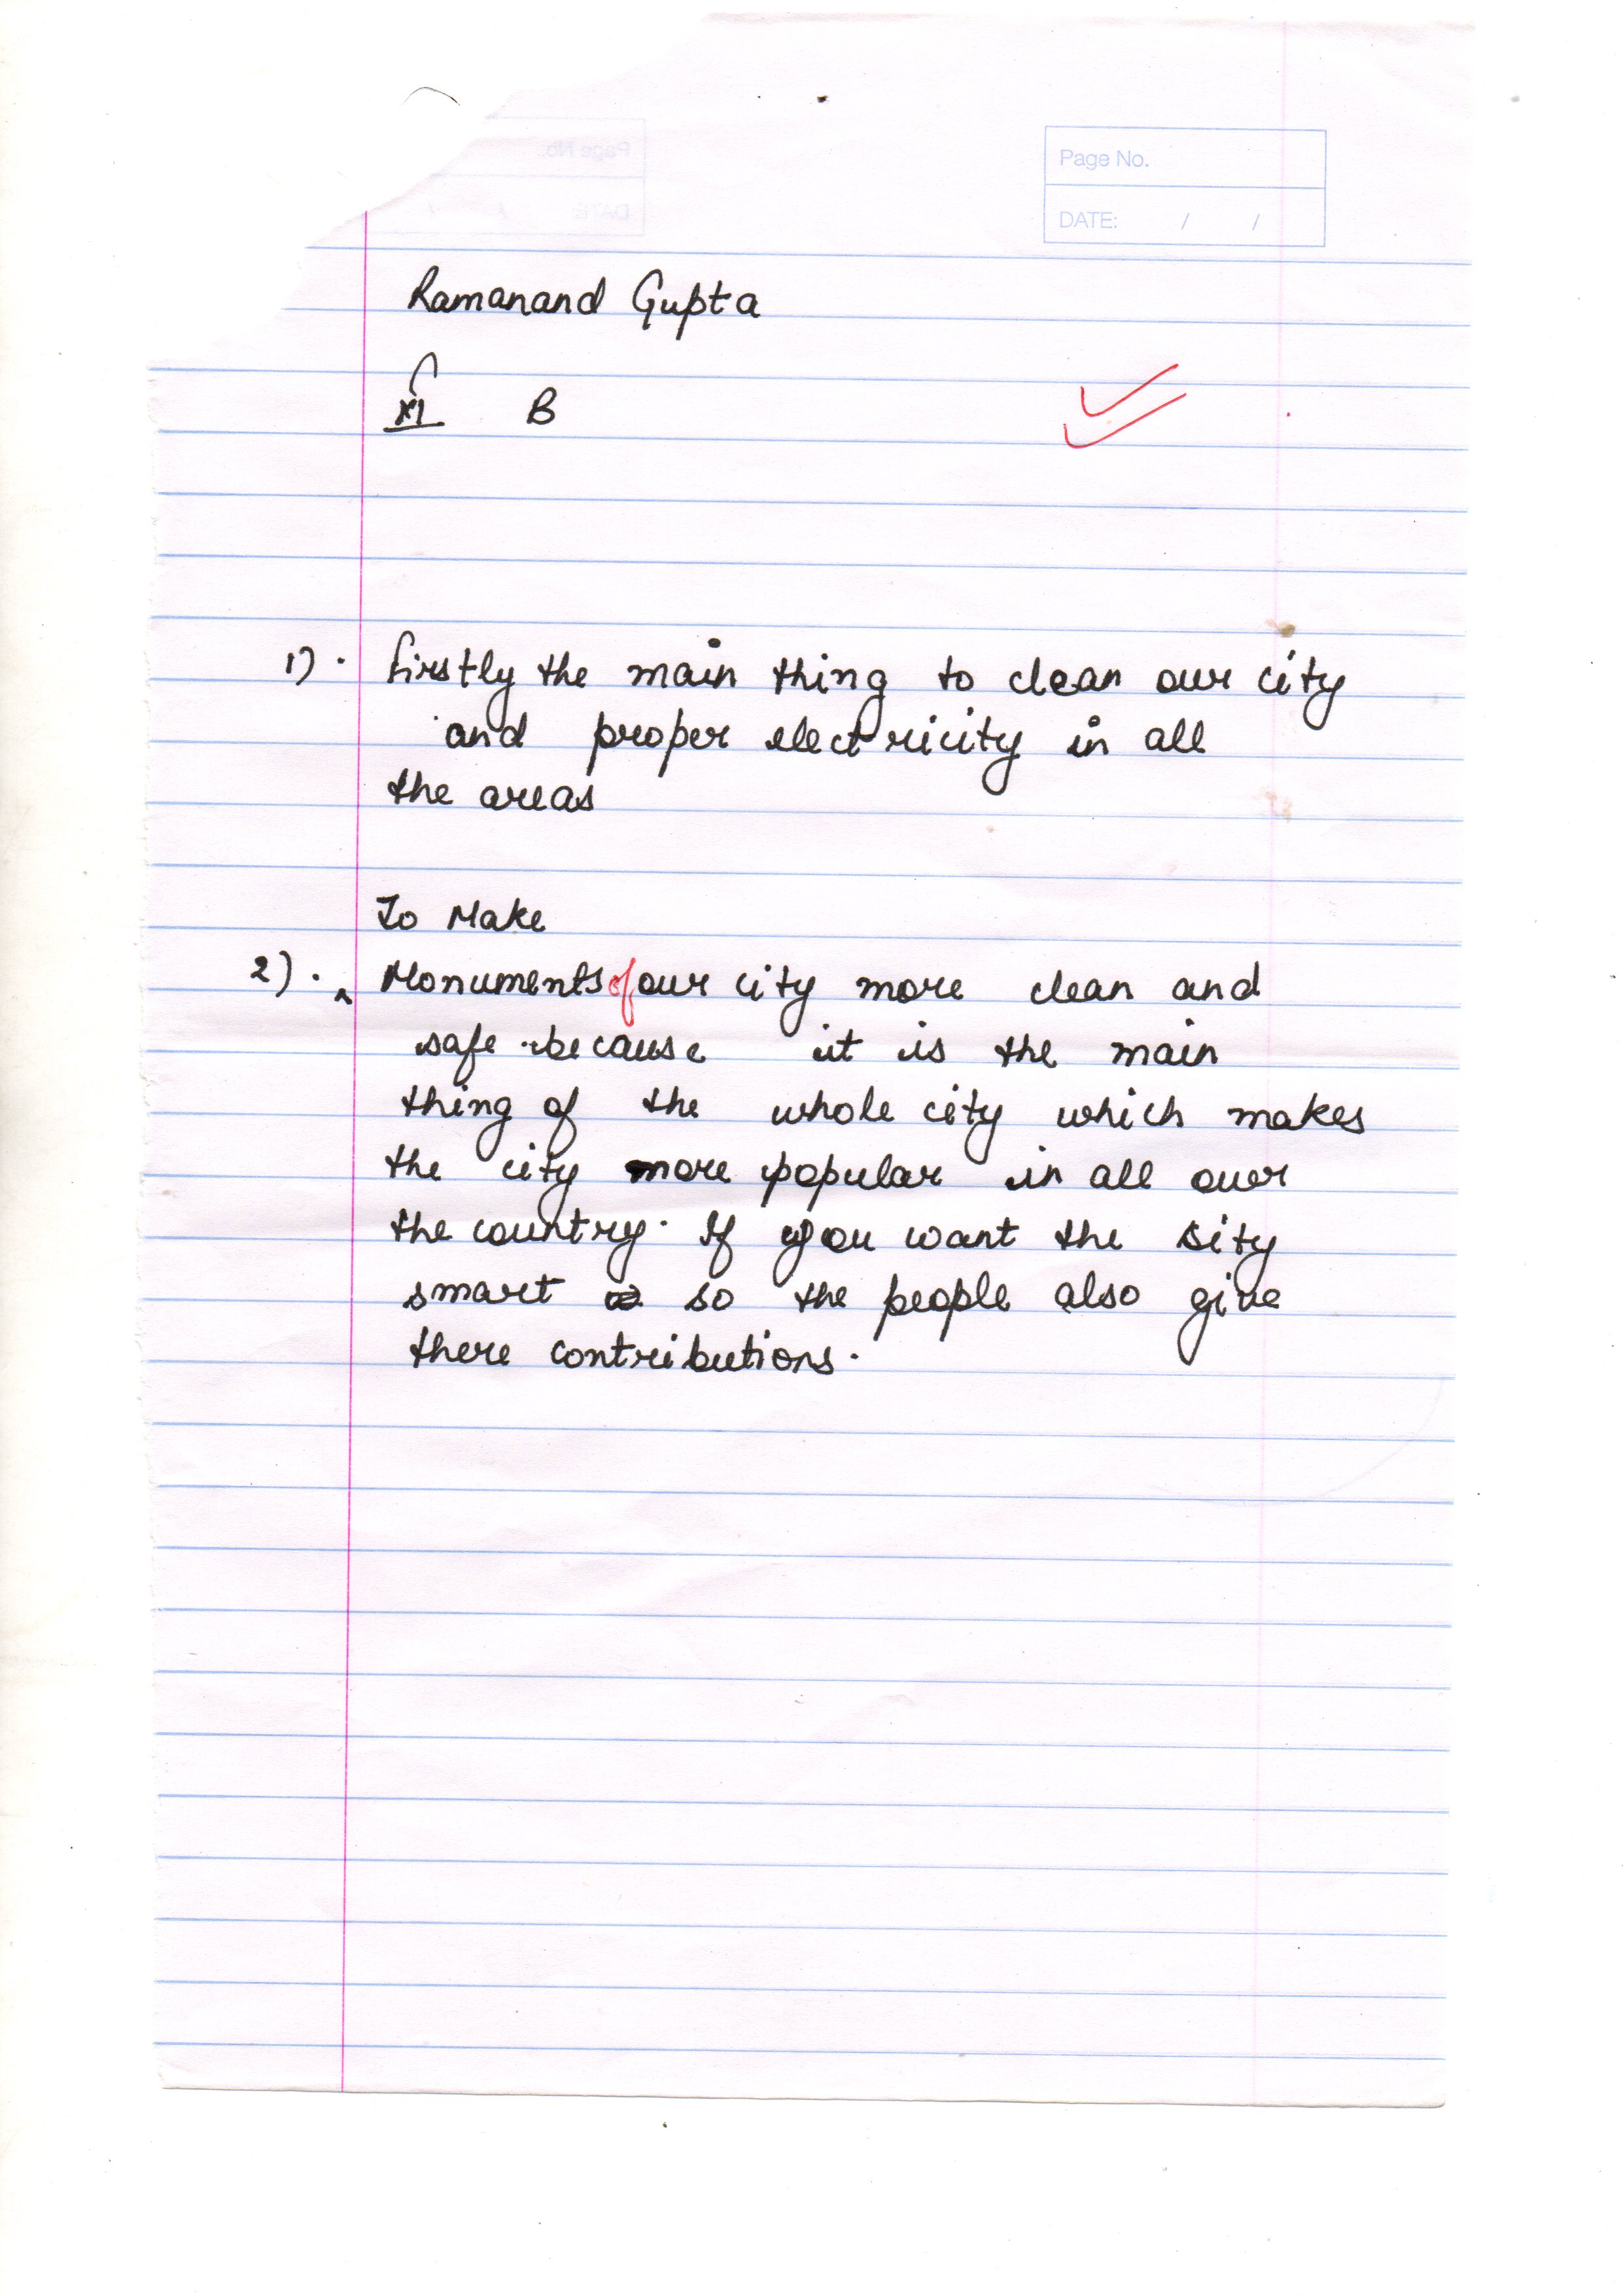 Page No.
DATE: / /
Ramanand Gupta
XI B
1). firstly the main thing to clean our city
and proper electricity in all
the areas
To Make
2). ^ Monuments of our city more clean and
safe because it is the main
thing of the whole city which makes
the city more popular in all over
the country. If you want the sity
smart so the people also give
there contributions.